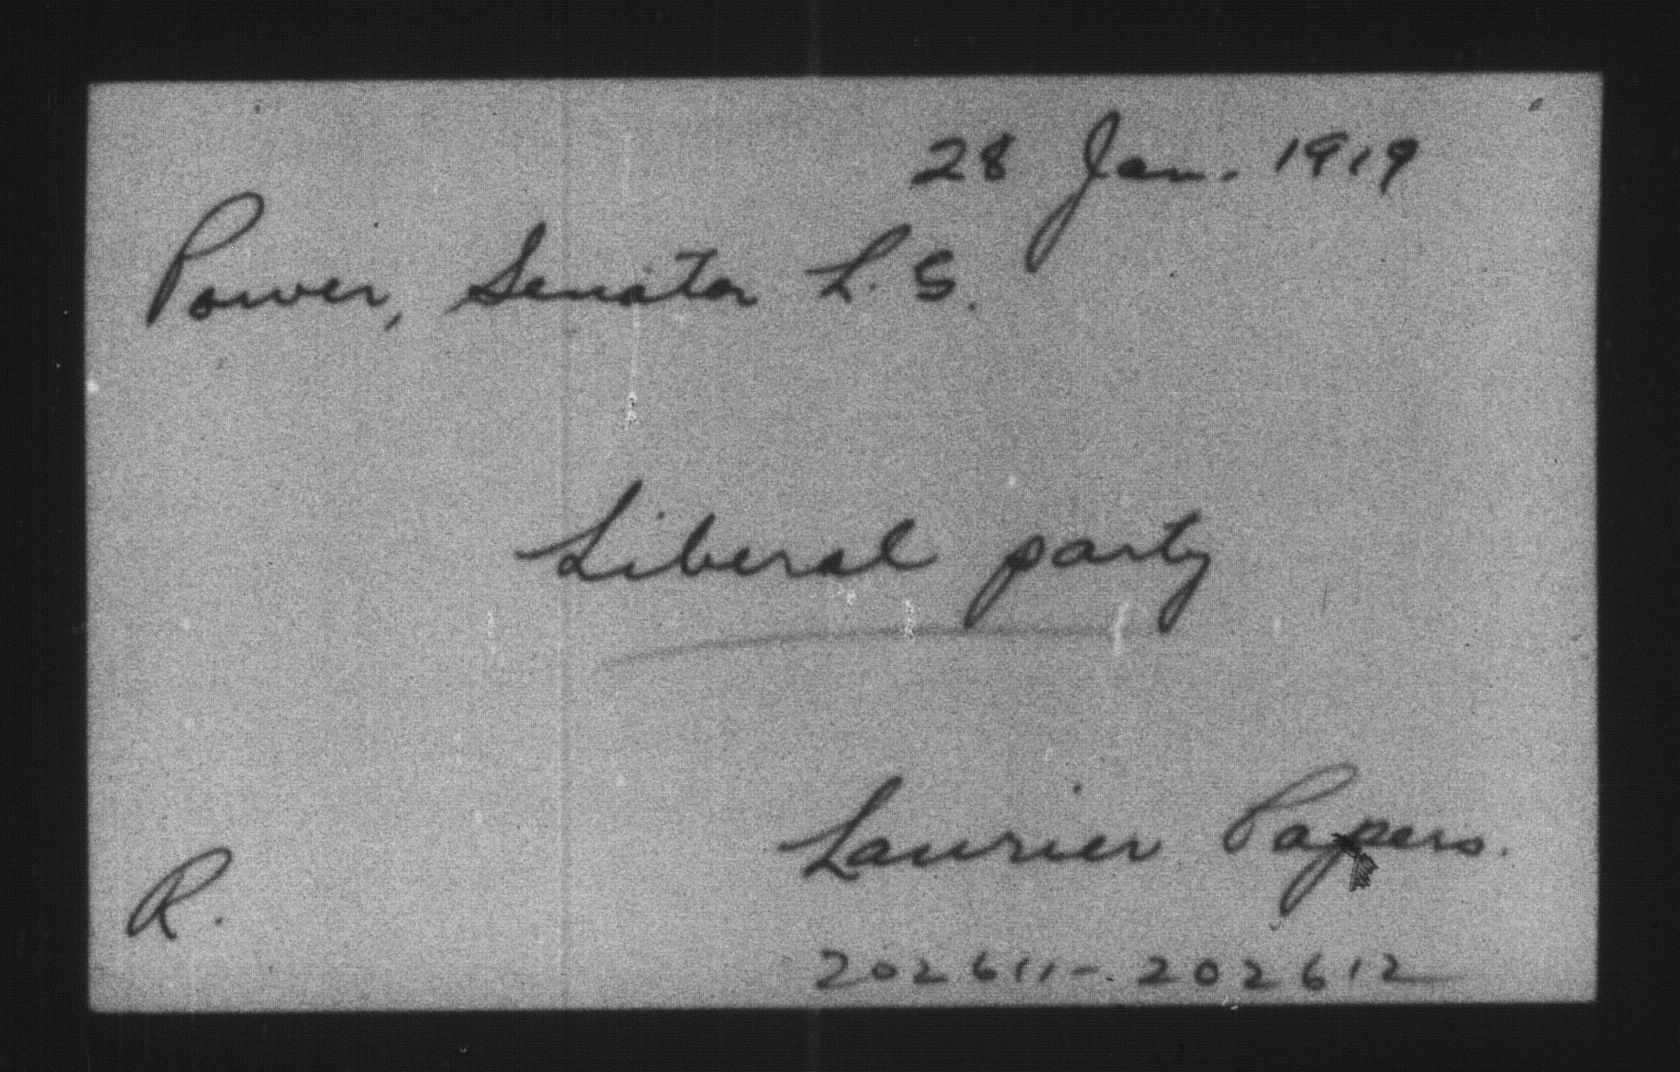 28 Jan. 1919
Power, Senator L. G.
Liberal party
Laurier Papers.
R.
202611-202612